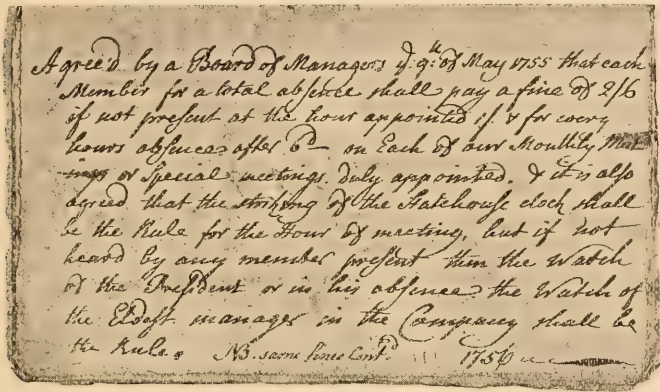 Agreed by a Board of Managers ye 9th of May 1755 that each
Member for a total absence shall pay a fine of 2/6
if not present at the hour appointed 1/. & for every
hours absence after 6d— on Each of our Monthly Meet
ings or Special meetings duly appointed. & it is also
agreed that the striking of the Statehouse clock shall
be the Rule for the Hour of meeting, but if not
heard by any member present then the Watch
of the President or in his absence the Watch of
the Eldest manager in the Company shall be
the Rule. NB. same fines Contd 1756